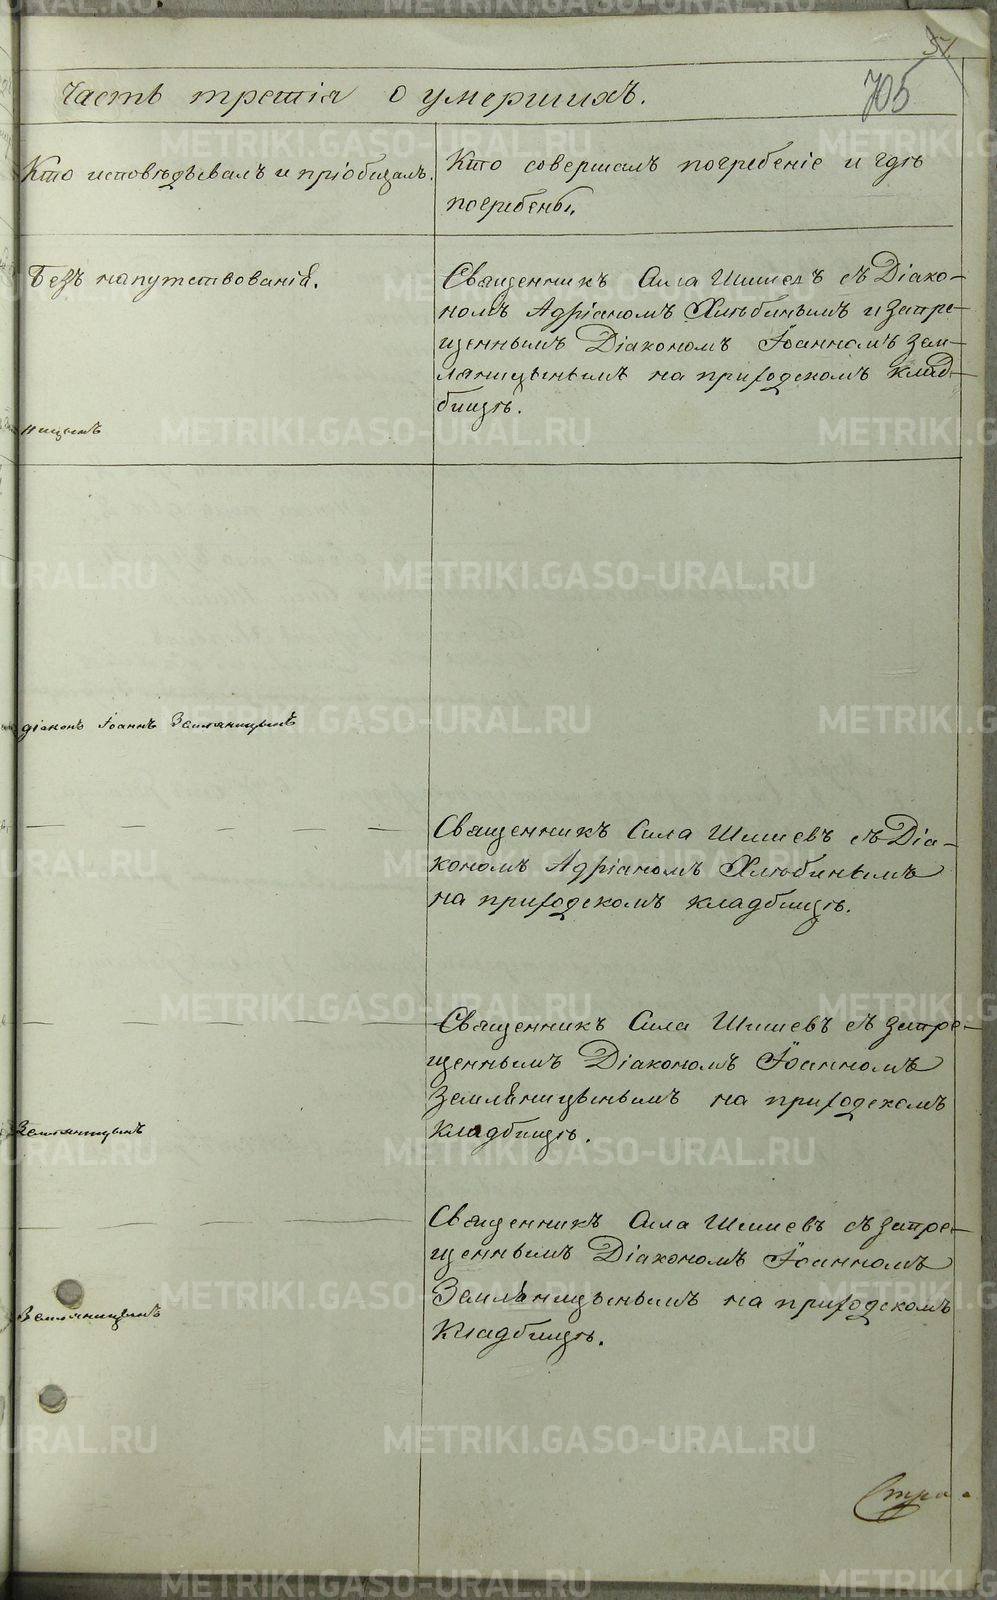 51
705
Часть третія о умершихъ.
Кто исповѣдывалъ и пріобщалъ.
Кто совершалъ погребеніе и гдѣ
погребены.
Безъ напутствованія.
Священникъ Сила Шишевъ съ Діако-
номъ Адріаномъ Хлюбинымъ и запре-
щеннымъ Діакономъ Іоанномъ Зем-
ляницынымъ на приходскомъ клад-
бищѣ.
діаконъ Іоаннъ Земляницынъ
Священникъ Сила Шишевъ съ Діа-
кономъ Адріаномъ Хлюбинымъ
на приходскомъ кладбищѣ.
Священникъ Сила Шишевъ съ запре-
щеннымъ Діакономъ Іоанномъ
Земляницынымъ на приходскомъ
кладбищѣ.
Земляницынъ
Священникъ Сила Шишевъ съ запре-
щеннымъ Діакономъ Іоанномъ
Земляницынымъ на приходскомъ
кладбищѣ.
Земляницынъ
METRIKI.GASO-URAL.RU